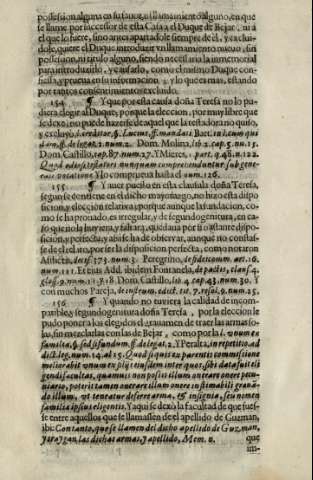 possession alguna en su fauor, ni llamamiento alguno, en que
se llame por successor de esta Casa a el Duque de Bejar, ni a
el que lo fuere, sino antes apartadole siempre de el, y excluido
dole, quiere el Duque introducir vn llamamiento nueuo, sin
possession, ni titulo alguno, siendo necessario la inmemorial
para introducirlo, y causarlo, como el mismo Duque con-
fiessa, y prueua en su informacion, y lo que es mas, estando
por tantos consentimientos excluido.
154 ¶ Y que por esta causa doña Teresa no lo pu-
diera elegir al Duque, porque la eleccion, por muy libre que
se dexe, no puede hazerse de aquel que la testadora no quiso,
y excluyò, l. creditor, §. Lucius, ff. mandati Bart. in l. cum qui
ff. de legat. 1. num. 2. Dom. Molina, lib. 2. cap. 5. nu. 15.
Dom Castillo, cap. 87. num. 27. Y Mieres, 1. part. q. 48. n. 122.
Quod nunquam comprehenduntur sub gene-
rali vocatione Y lo comprueua hasta el num. 126.
155 ¶ Y auer puesto en esta clausula doña Teresa,
segun se contiene en el dicho mayorazgo, no hizo esta dispo
sicion, y eleccion relatiua; porque aunque la fundacion, co-
mo se ha prouado, es irregular, y de segundogenitura, en ca-
so que no la huuiera, y faltara, quedaua por si bastante dispo-
sicion, y perfecta; y assi se ha de obseruar, aunque no constas-
se de el relato, por ser la disposicion perfecta, como notaron
Afflictis, decis. 373. num. 3. Peregrino, de fideicomm. art. 16.
num. 111. Et enus Add. ibidem Fontanela, de pactis, claus. 4.
glos. 9. num. Dom Castillo, lib. 4. cap. 43. num. 30. Y
con muchos Pareja, de instrum. edit. tit. 7. resol. 9. num. 45.
156 ¶ Y quando no tuuiera la calidad de incom-
patible, y segundogenitura doña Teresa, por la eleccion le
pudo poner a los elegidos el grauamen de traer las armas so-
lo, sin mezclarlas con las de Bejar, como por la l. vnum ex
familia, §. sed si fundum, ff. de legat. 2. Y Peralta, in repetitio. ad
dict. leg. num. 14. al 15. Quod si quis ex parentis commissione
meliorabit vnum ex filijs eiusdem inter quos, sibi data fuit eli
gendi facultas, quamuis non possit illum onerare onere pecu-
niario, poterit tamen onerare illum onere in estimabili graua-
do illum, vt teneatur deferre arma, & insignia, seu nomen
familiæ ipsius eligentis, Y aqui se dexò la facultad de que fues-
se entre aquellos que se llamassen de el apellido de Guzman,
ibi: Con tanto, que se llamen del dicho apellido de Guzman,
y traygan las dichas armas, y apellido, Mem. n. que
im-